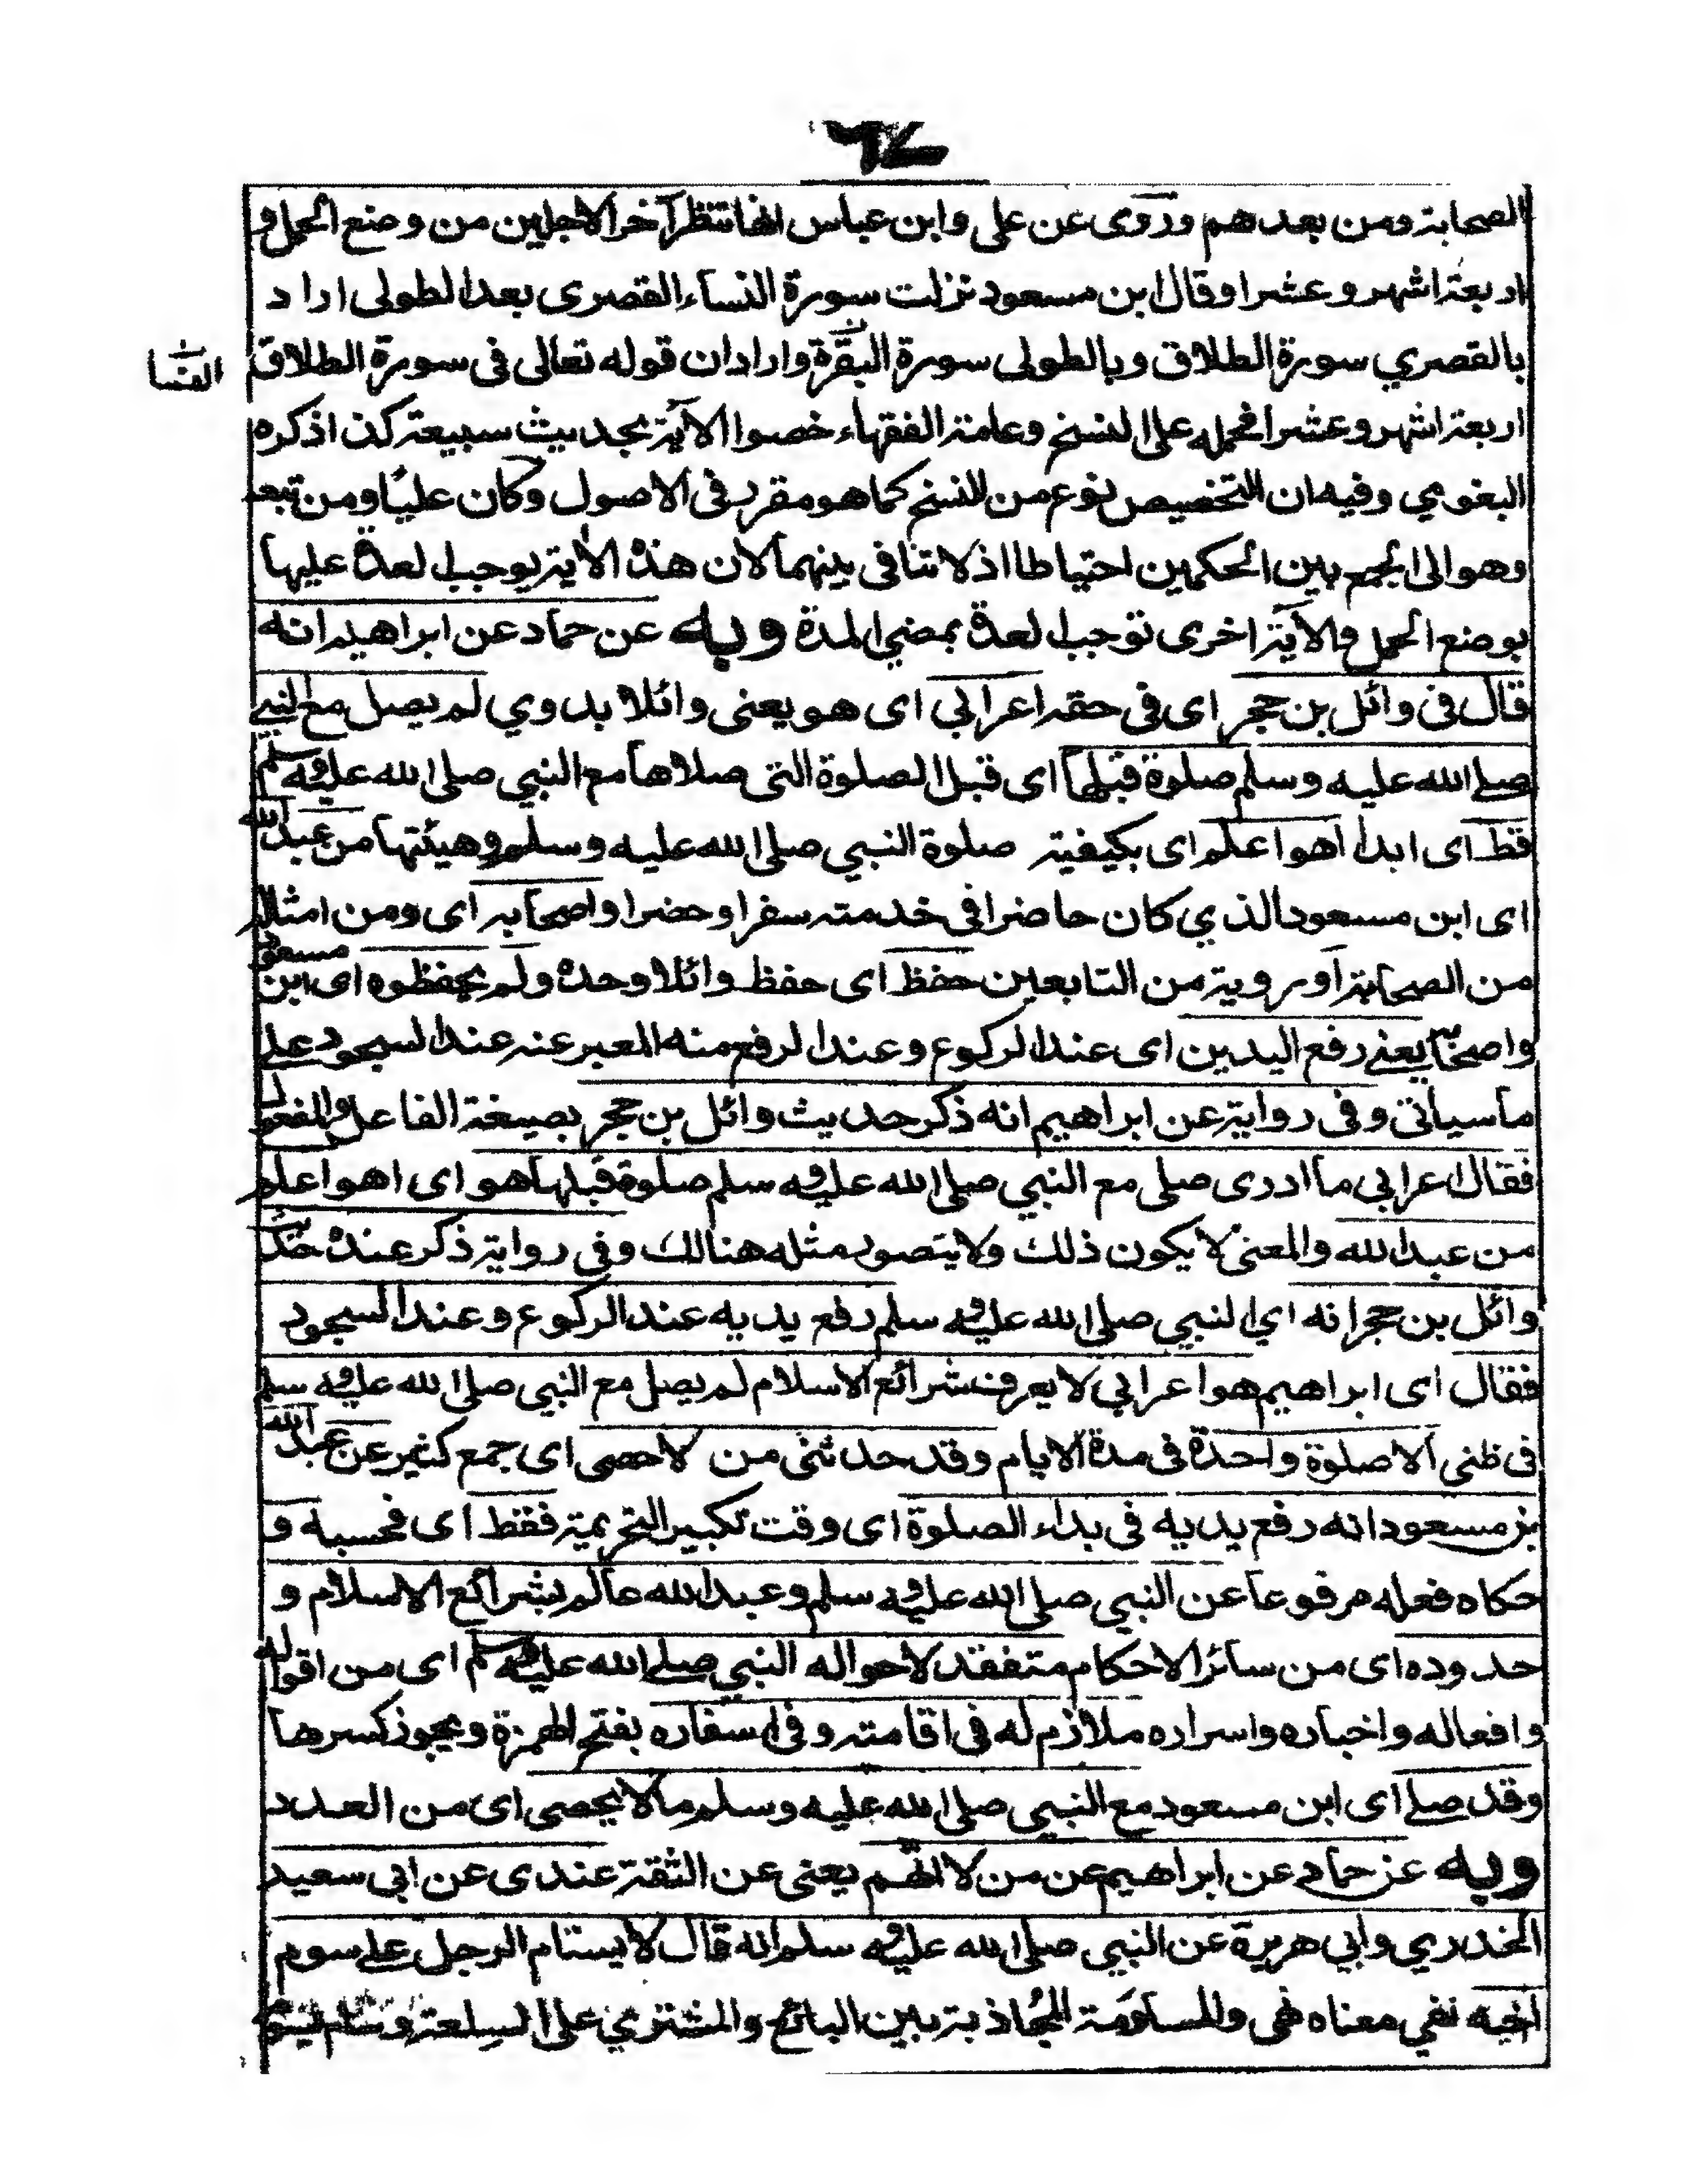 ٦٧
الصحابة ومن بعدهم وروى عن على وابن عباس انها تنتظر آخر الاجلين من وضع الحمل و
اربعة اشهر وعشرا وقال ابن مسعود نزلت سورة النساء القصرى بعد الطولى اراد
بالقصري سورة الطلاق وبالطولى سورة البقرة واراد ان قوله تعالى فى سورة الطلاق
اربعة اشهر وعشرا فحمله على النسخ وعامة الفقهاء خصوا الآية بحديث سبيعة كذا ذكره
البغوي وفيه ان التخصيص نوع من النسخ كما هو مقرر فى الاصول وكان عليا ومن تبعه
وهو الى الجمع بين الحكمين احتياطا اذ لا تنافى بينهما لان هذه الاية يوجب العدة عليها
بوضع الحمل والآية اخرى توجب العدة بمضي المدة وبه عن حماد عن ابراهيم انه
قال فى وائل بن حجر اى فى حقه اعرابي اى هو يعنى وائلا بدوي لم يصل مع النبي
صلى الله عليه وسلم صلوة قبلها اى قبل الصلوة التى صلاها مع النبي صلى الله عليه وسلم
قط اى ابدا اهو اعلم اى بكيفية صلوة النبي صلى الله عليه وسلم وهيئتها من عبد الله
اى ابن مسعود الذي كان حاضرا فى خدمته سفرا وحضرا واصحابه اى ومن امثاله
من الصحابة او روية من التابعين حفظ اى حفظ وائلا وحده ولم يحفظوه اى ابن مسعود
واصحابه يعنى رفع اليدين اى عند الركوع وعند الرفع منه المعبر عنه عند السجود على
ما سياتى وفى رواية عن ابراهيم انه ذكر حديث وائل بن حجر بصيغة الفاعل والمفعول
فقال اعرابي ما ادرى صلى مع النبي صلى الله عليه وسلم صلوة قبلها هو اى اهو اعلم
من عبد الله والمعنى لا يكون ذلك ولا يتصور مثله هنالك وفى رواية ذكر عنده حديث
وائل بن حجر انه اي النبي صلى الله عليه وسلم رفع يديه عند الركوع وعند السجود
فقال اى ابراهيم هو اعرابي لا يعرف شرائع الاسلام لم يصل مع النبي صلى الله عليه وسلم
فى ظنى الا صلوة واحدة فى مدة الايام وقد حدثنى من لا احصى اى جمع كثير عن عبد الله
بن مسعود انه رفع يديه فى بداء الصلوة اى وقت تكبير التحريمة فقط اى فحسبه و
حكاه فعله مرفوعا عن النبي صلى الله عليه وسلم وعبد الله عالم بشرائع الاسلام و
حدوده اى من سائر الاحكام متفقد لاحواله النبي صلى الله عليه وسلم اى من اقواله
وافعاله واخباره واسراره ملازم له فى اقامته وفى اسفاره بفتح الهمزة ويجوز كسرها
وقد صلى اى ابن مسعود مع النبي صلى الله عليه وسلم ما لا يحصى اى من العدد
وبه عن حماد عن ابراهيم عن من لا اتهم يعنى عن الثقة عندى عن ابى سعيد
الخدري وابي هريرة عن النبي صلى الله عليه وسلم انه قال لا يستام الرجل على سوم
اخيه نفي معناه نهى والمساومة المجاذبة بين البائع والمشتري على السلعة